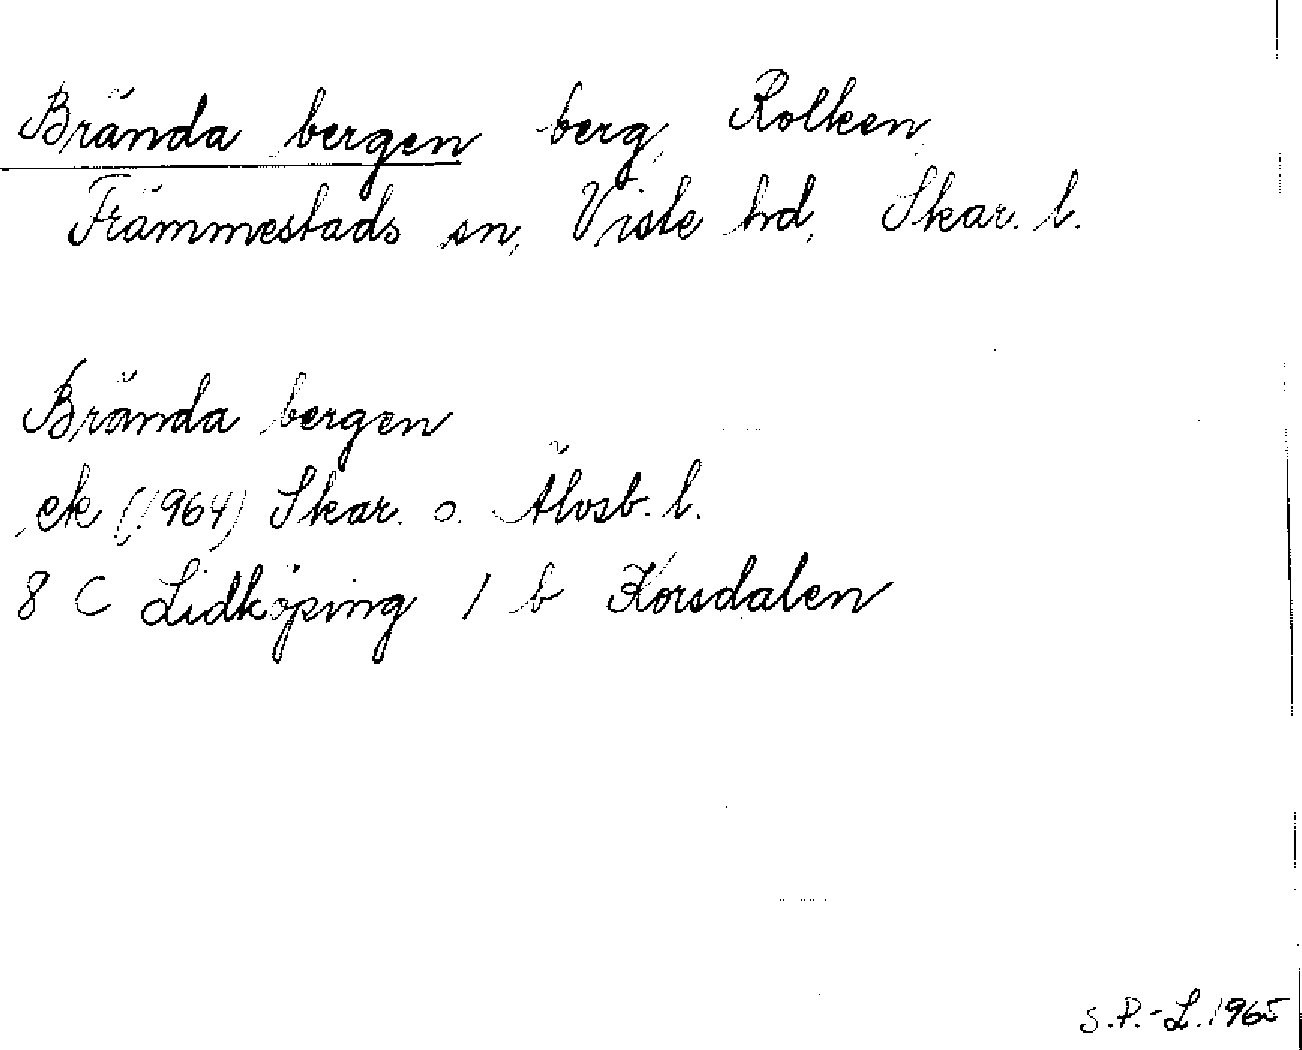 Brända bergen berg, Rolken,
Främmestads sn, Viste hd, Skar. l.
Brända bergen
ek (1964) Skar. o. Älvsb. l.
8 C Lidköping 1 b Korsdalen
S.P.-L. 1965